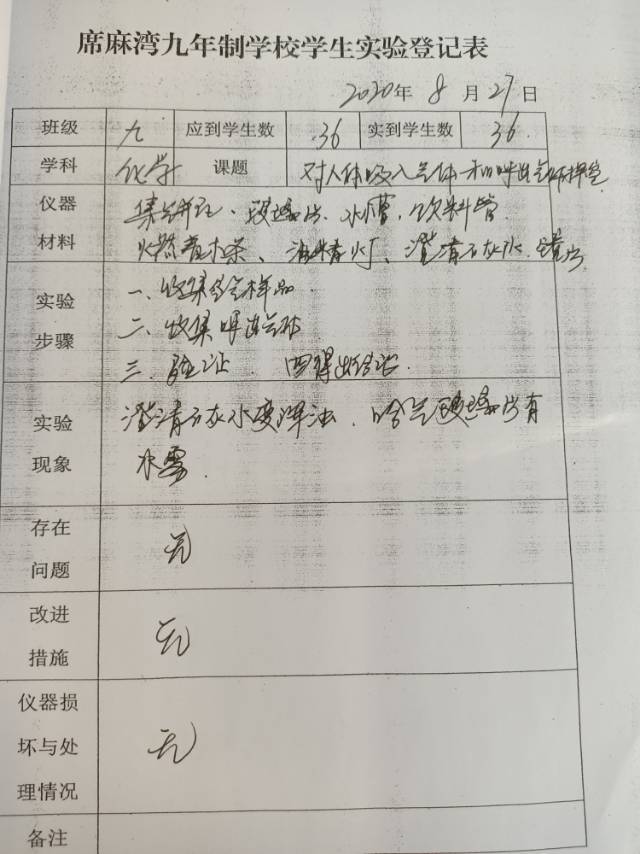 席麻湾九年制学校学生实验登记表
2020年 8 月 27 日
班级 九 应到学生数 36 实到学生数 36
学科 化学 课题 对人体吸入气体和呼出气体探究
仪器 集气瓶、玻璃片、水槽、饮料管
材料 火柴、木条、酒精灯、澄清石灰水
实验 一、收集空气样品
步骤 二、收集呼出气体
三、验证 四得出结论
实验 澄清石灰水变浑浊、哈气玻璃片有
现象 水雾
存在
问题 无
改进
措施 无
仪器损
坏与处 无
理情况
备注